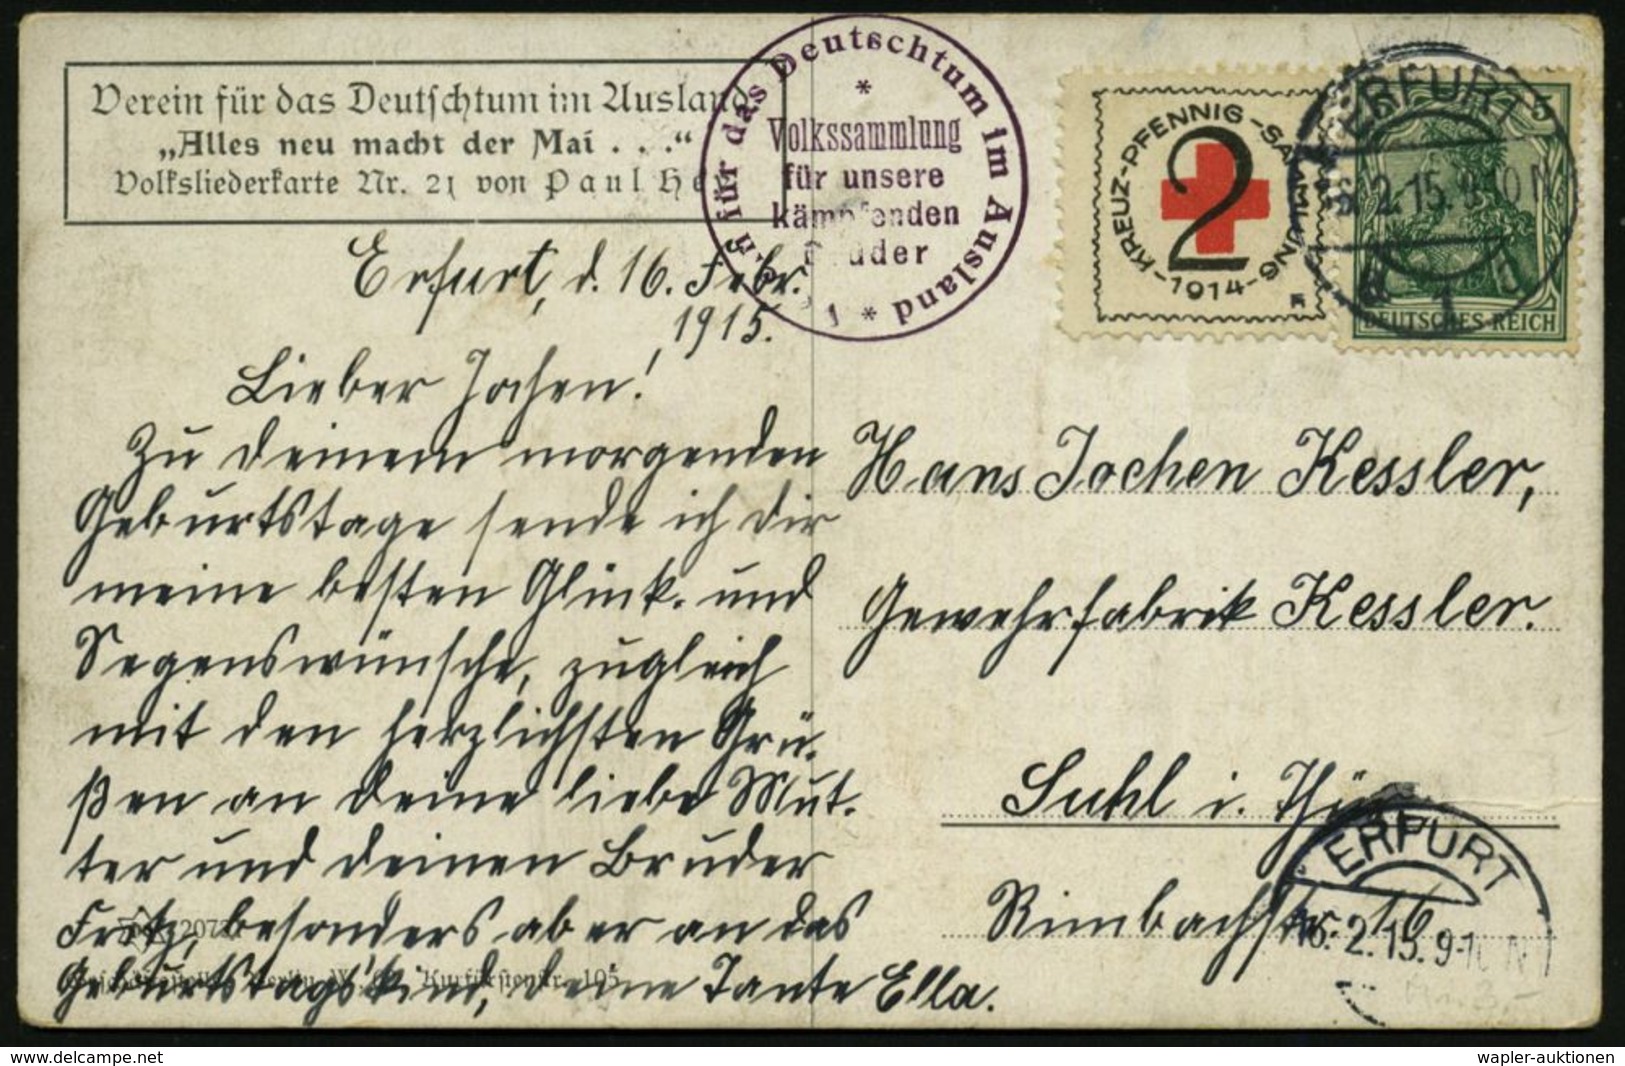 Verein für das Deutschtum im Ausland
„Alles neu macht der Mai . . .“
Volksliederkarte Nr. 21 von Paul
für das Deutschtum im Ausland *
*
Volkssammlung
für unsere
kämpfenden
KREUZ-PFENNIG-SAMMLUNG
2
-1914-
ERFURT
2.15.
1
5
DEUTSCHES REICH
Erfurt, d. 16. Febr.
1915.
Lieber Jochen!
Zu deinem morgenden
Geburtstage sende ich dir
meine besten Glück- und
Segenswünsche, zugleich
mit den herzlichsten Grü-
ßen an deine liebe Mut-
ter und deinen Bruder
Fritz, besonders aber an das
Geburtstagskind, deine Tante Ella.
Hans Jochen Kessler,
Gewehrfabrik Kessler.
Suhl i. Thür
Rimbachstr. 16
ERFURT
16.2.15.9-10 N
delcampe.net
wapler-auktionen